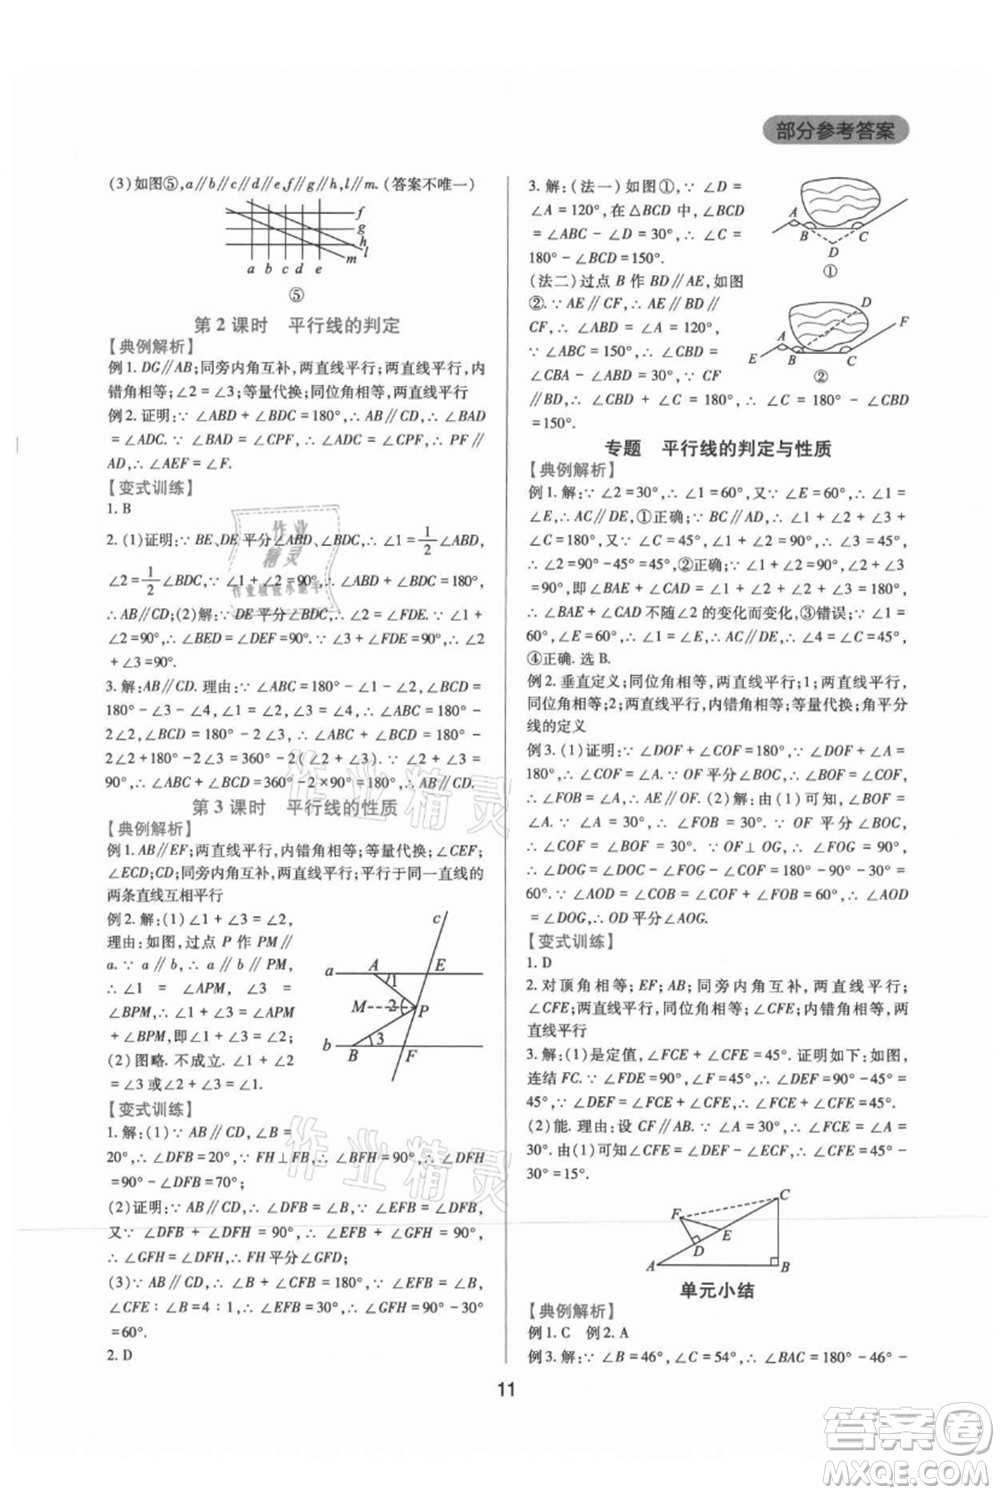 部分参考答案
(3)如图⑤,a∥b∥c∥d∥e,f∥g∥h,l∥m.(答案不唯一)
f
g
h
l
m
a b c d e
⑤
第 2 课时 平行线的判定
【典例解析】
例 1. DG∥AB;同旁内角互补,两直线平行;两直线平行,内
错角相等;∠2=∠3;等量代换;同位角相等,两直线平行
例 2. 证明:∵∠ABD+∠BDC=180°,∴AB∥CD,∴∠BAD
=∠ADC.∵∠BAD=∠CPF,∴∠ADC=∠CPF,∴PF∥
AD,∴∠AEF=∠F.
【变式训练】
1. B
2. (1)证明:∵BE、DE 平分∠ABD、∠BDC,∴∠1=1/2∠ABD,
∠2=1/2∠BDC,∵∠1+∠2=90°,∴∠ABD+∠BDC=180°,
∴AB∥CD;(2)解:∵DE 平分∠BDC,∴∠2=∠FDE.∵∠1+
∠2=90°,∴∠BED=∠DEF=90°,∴∠3+∠FDE=90°,∴∠2
+∠3=90°.
3. 解:AB∥CD. 理由:∵∠ABC=180°-∠2-∠2,∠BCD=
180°-∠3-∠3,∠2=∠3,∴∠ABC=∠BCD=180°-
2∠2,∴AB∥CD.∵∠ABC+∠BCD=180°-2∠2+180°-
2∠2=180°,∴∠ABC+∠BCD=360°-2×90°=180°,∴AB∥CD.
第 3 课时 平行线的性质
【典例解析】
例 1. AB∥EF;两直线平行,内错角相等;等量代换;∠CEF;
∠ECD;CD;同旁内角互补,两直线平行;平行于同一直线的
两条直线互相平行
例 2. 解:(1)∠1+∠3=∠2,
理由:如图,过点 P 作 PM∥
a.∵a∥b,∴a∥b∥PM,
∴∠1=∠APM,∠3=
∠BPM,∴∠1+∠3=∠APM
+∠BPM,即∠1+∠3=∠2;
(2)图略. 不成立.∠1=∠2
+∠3 或∠2+∠3=∠1
c
a A E
1
M 2 P
3
b B F
【变式训练】
1. 解:(1)∵AB∥CD,∠B=
20°,∴∠DFB=20°,∵FH⊥FB,∴∠BFH=90°,∴∠DFH
=90°-∠DFB=70°;
(2)证明:∵AB∥CD,∴∠DFB=∠B,∵∠DFB=∠EFB,
又∵∠BFH=90°,∴∠EFB+∠GFH=90°,∠DFB+
∠DFH=90°,∴∠GFH=∠DFH,∴FH 平分∠GFD;
(3)∵AB∥CD,∴∠B+∠CFB=180°,∵∠CFE:
∠B=4:1,∴∠EFB=30°,∴∠GFH=90°-∠EFB=90°-30°
=60°.
2. D
3. 解:(法一)如图①,∵∠D=
∠A=120°,在△BCD 中,∠BCD
=∠ABC-∠D=30°,∴∠C=
180°-∠BCD=150°.
A B C D
①
(法二)过点 B 作 BD∥AE,如图
②.∵AE∥CF,∴AE∥BD∥
CF,∴∠ABD=∠A=120°,
∴∠CBD=∠ABC-∠ABD=
150°-120°=30°.∵CF
∥BD,∴∠CBD+∠C=180°,∴∠C=180°-∠CBD
=150°.
D F
E A B C
②
专题 平行线的判定与性质
【典例解析】
例 1. 解:∵∠2=30°,∴∠1=60°,又∵∠E=60°,∴∠1=
∠E,∴AC∥DE,①正确;∵BC∥AD,∴∠B+∠BAD=
180°,又∵∠B=45°,∴∠BAD=135°,∴∠2=45°,②正确;
∵∠BAE+∠CAD=∠1+∠2+∠2+∠3=90°+90°
=180°,即∠BAE+∠CAD=180°,
∴∠BAE+∠CAD 不随∠2 的变化而变化,③错误;∵∠1=
60°,∠E=60°,∴∠1=∠E,∴AC∥DE,∴∠4=∠C=45°,
④正确. 选 B.
例 2. 垂直定义;同位角相等,两直线平行;1;两直线平行,同
位角相等;2;两直线平行,内错角相等;等量代换;角平分
线的定义
例 3. (1)证明:∵∠DOF+∠COF=180°,∵∠DOF+
∠AOF=180°,∴∠COF=∠AOF.
∴∠FOB=∠AOF;(2)解:由(1)知,∠BOF=
30°,∵OF 平分∠BOC,
∴∠COF=∠BOF=30°.∵OF⊥OG,∴∠FOG=90°,
∵∠AOD=∠COB=60°,∴∠AOD
=∠DOG,∴OD 平分∠AOG.
【变式训练】
1. D
2. 对顶角相等;EF;AB;同旁内角互补,两直线平行;
∠CFE;两直线平行,同位角相等;∠CFE;内错角相等,两
直线平行
3. 解:(1)是定值,∠FCE+∠CFE=45°. 证明如下:如图,
连结 FC.∵∠DEF=∠FCE+∠CFE,
又∵∠DEF=45°,∴∠FCE+∠CFE=45°.
(2)能. 理由:设 CF∥AB,∴∠FCE=∠A=
30°.由(1)可知,∠CFE+∠FCE=45°,∠CFE=45°-
30°=15°.
F C
D E
A B
单元小结
【典例解析】
例 1. C 例 2. A
例 3. 解:∵∠B=46°,∠C=54°,∴∠BAC=180°-46°-
11
作业精灵
答案圈
MXQE.COM